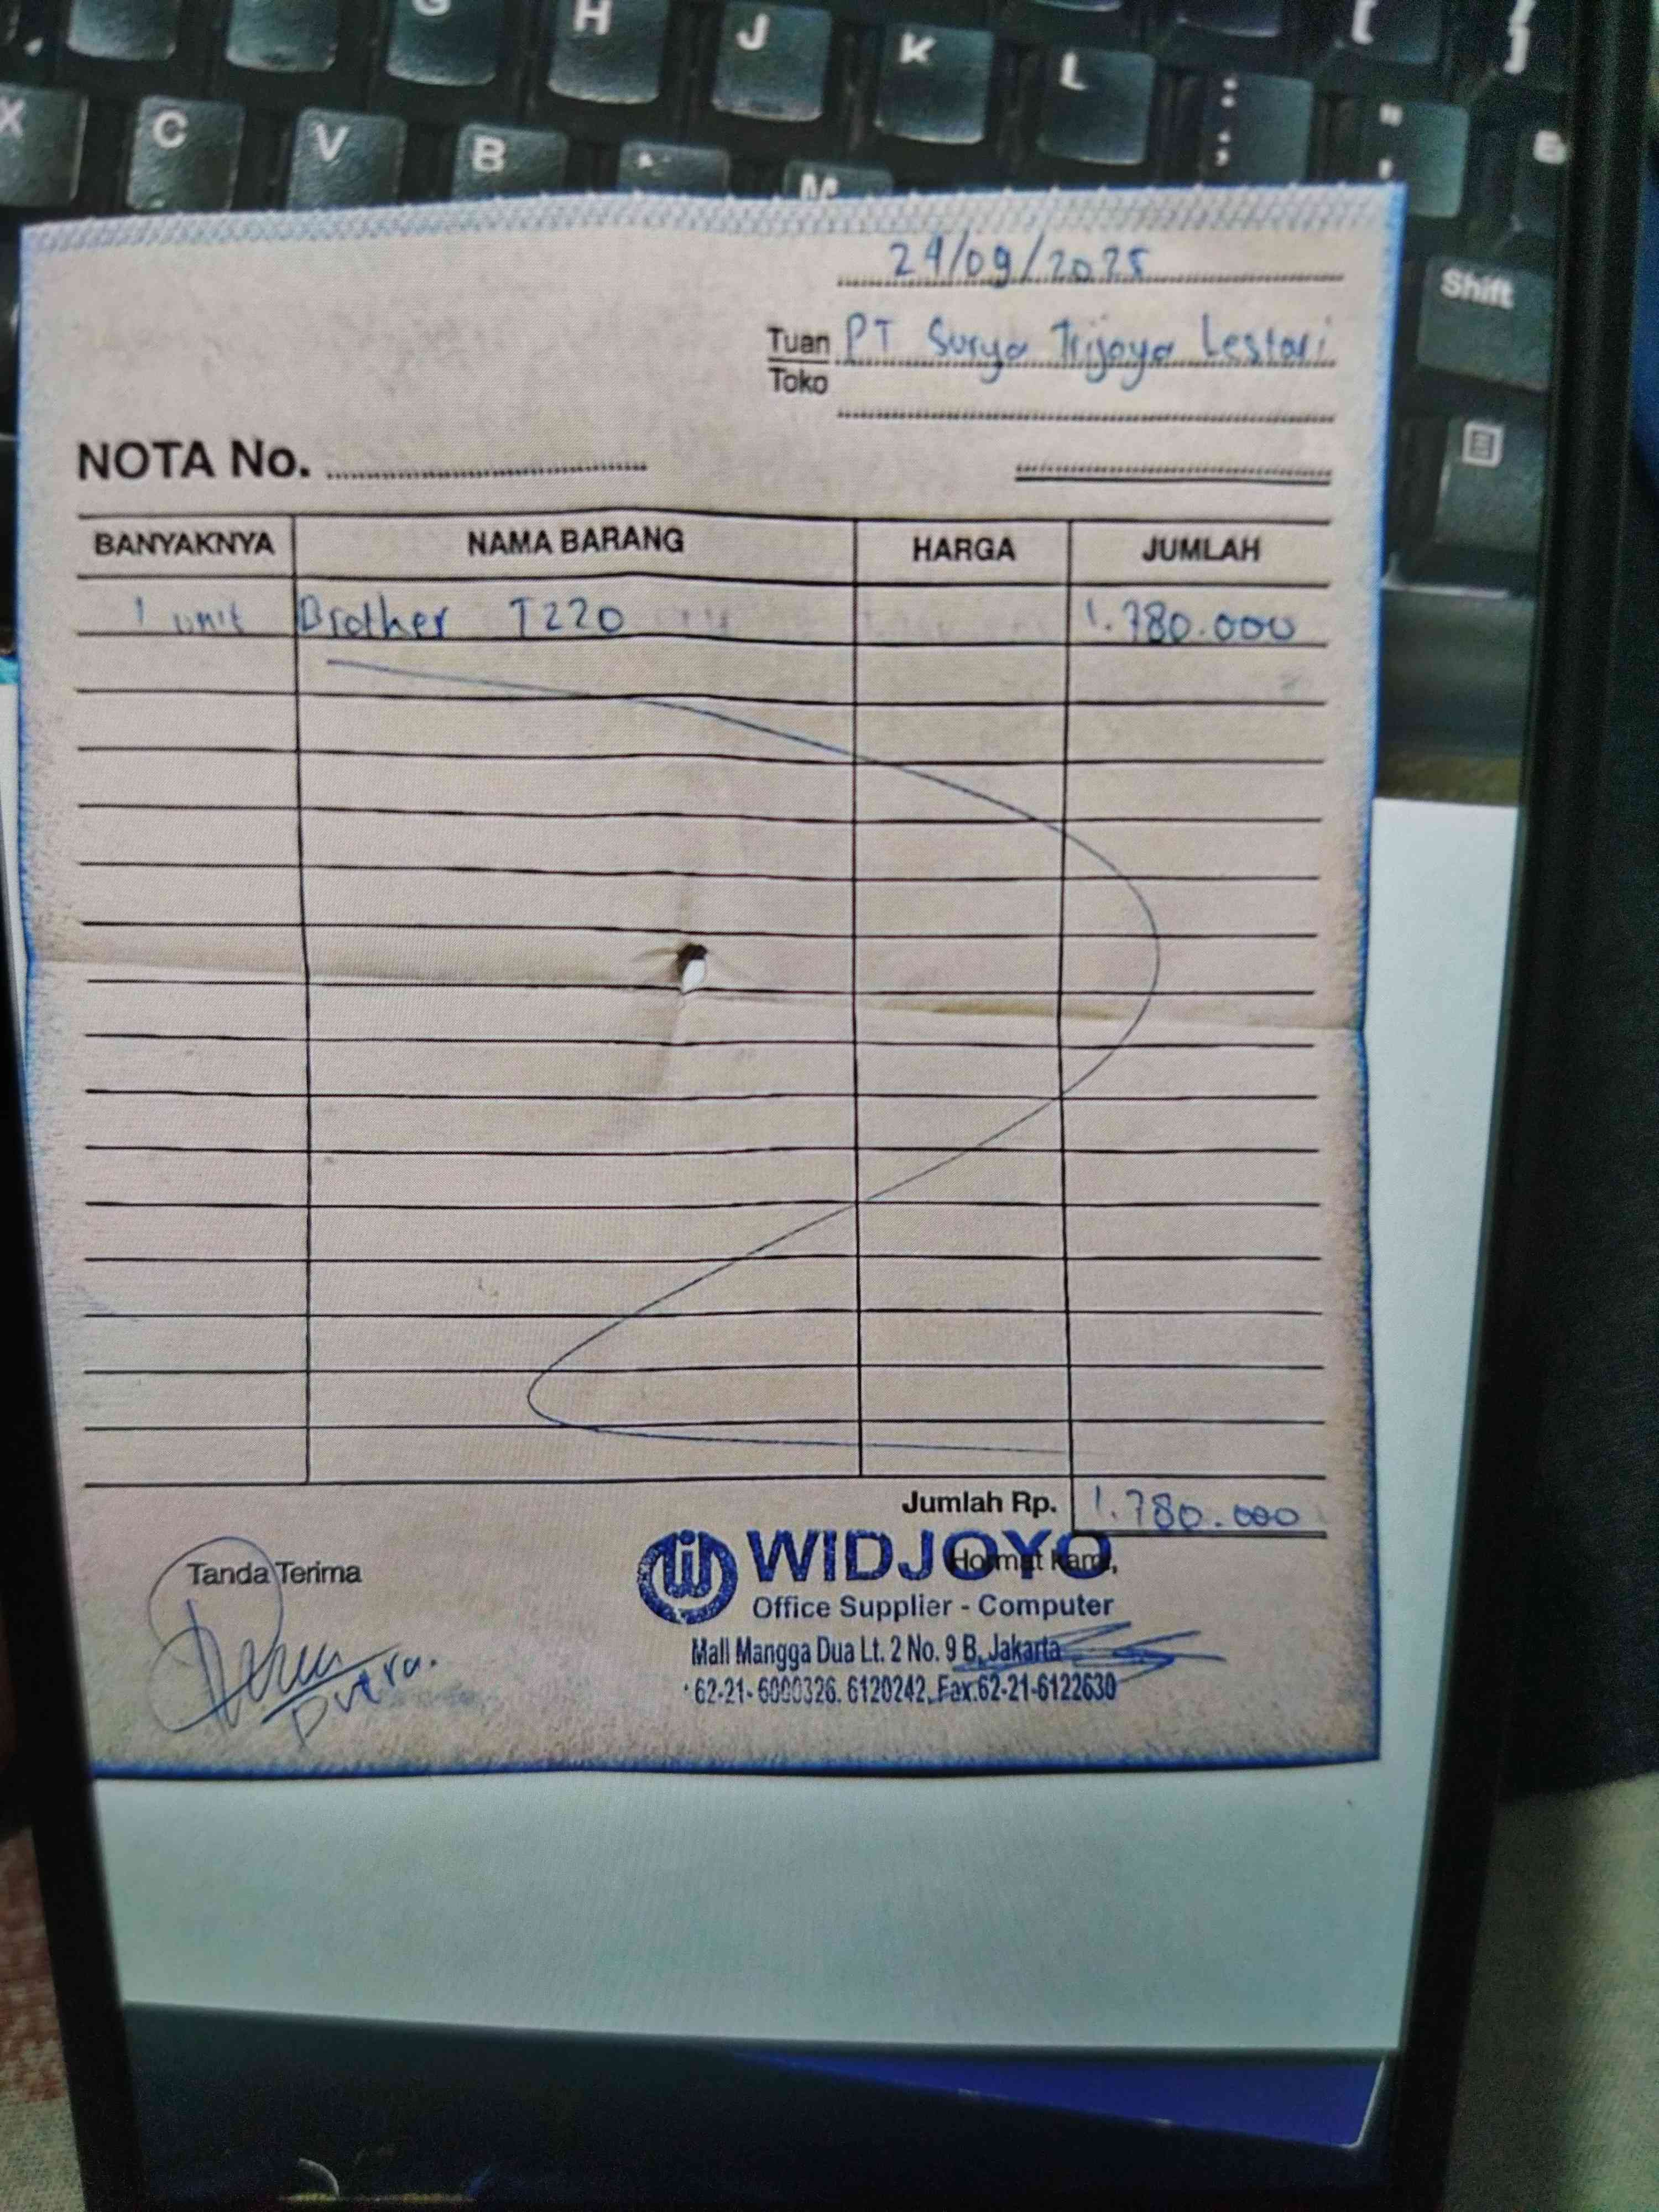 G H J K L : ; " ' [ ] }
X C V B M
Shift
24/09/2025
Tuan PT Surya Trijaya Lestari
Toko
NOTA No.
BANYAKNYA NAMA BARANG HARGA JUMLAH
1 unit Brother T220 1.780.000
Jumlah Rp. 1.780.000
Tanda Terima
Hormat Kami,
WIDJOYO
Office Supplier - Computer
Mall Mangga Dua Lt. 2 No. 9 B, Jakarta
62-21-6000326. 6120242, Fax.62-21-6122630
Putra.